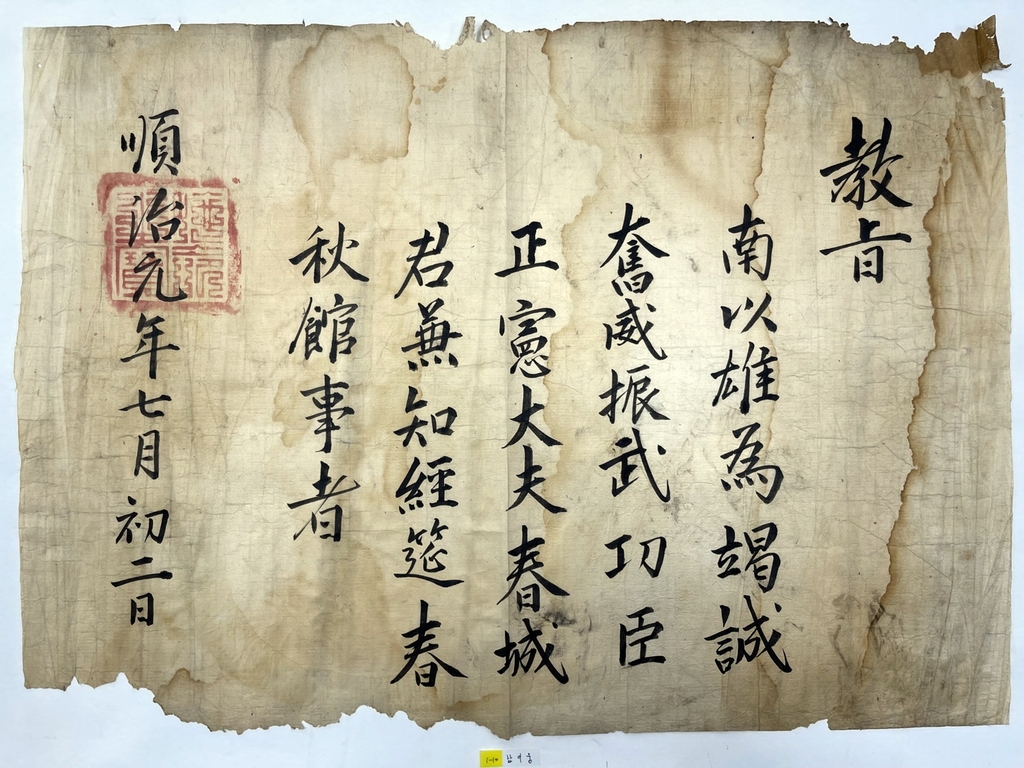 敎旨
南以雄為竭誠
奮威振武功臣
正憲大夫春城
君兼知經筵春
秋館事者
順治元年七月初二日
1-10 남이웅